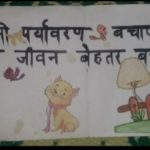 पर्यावरण बचाए
जीवन बेहतर